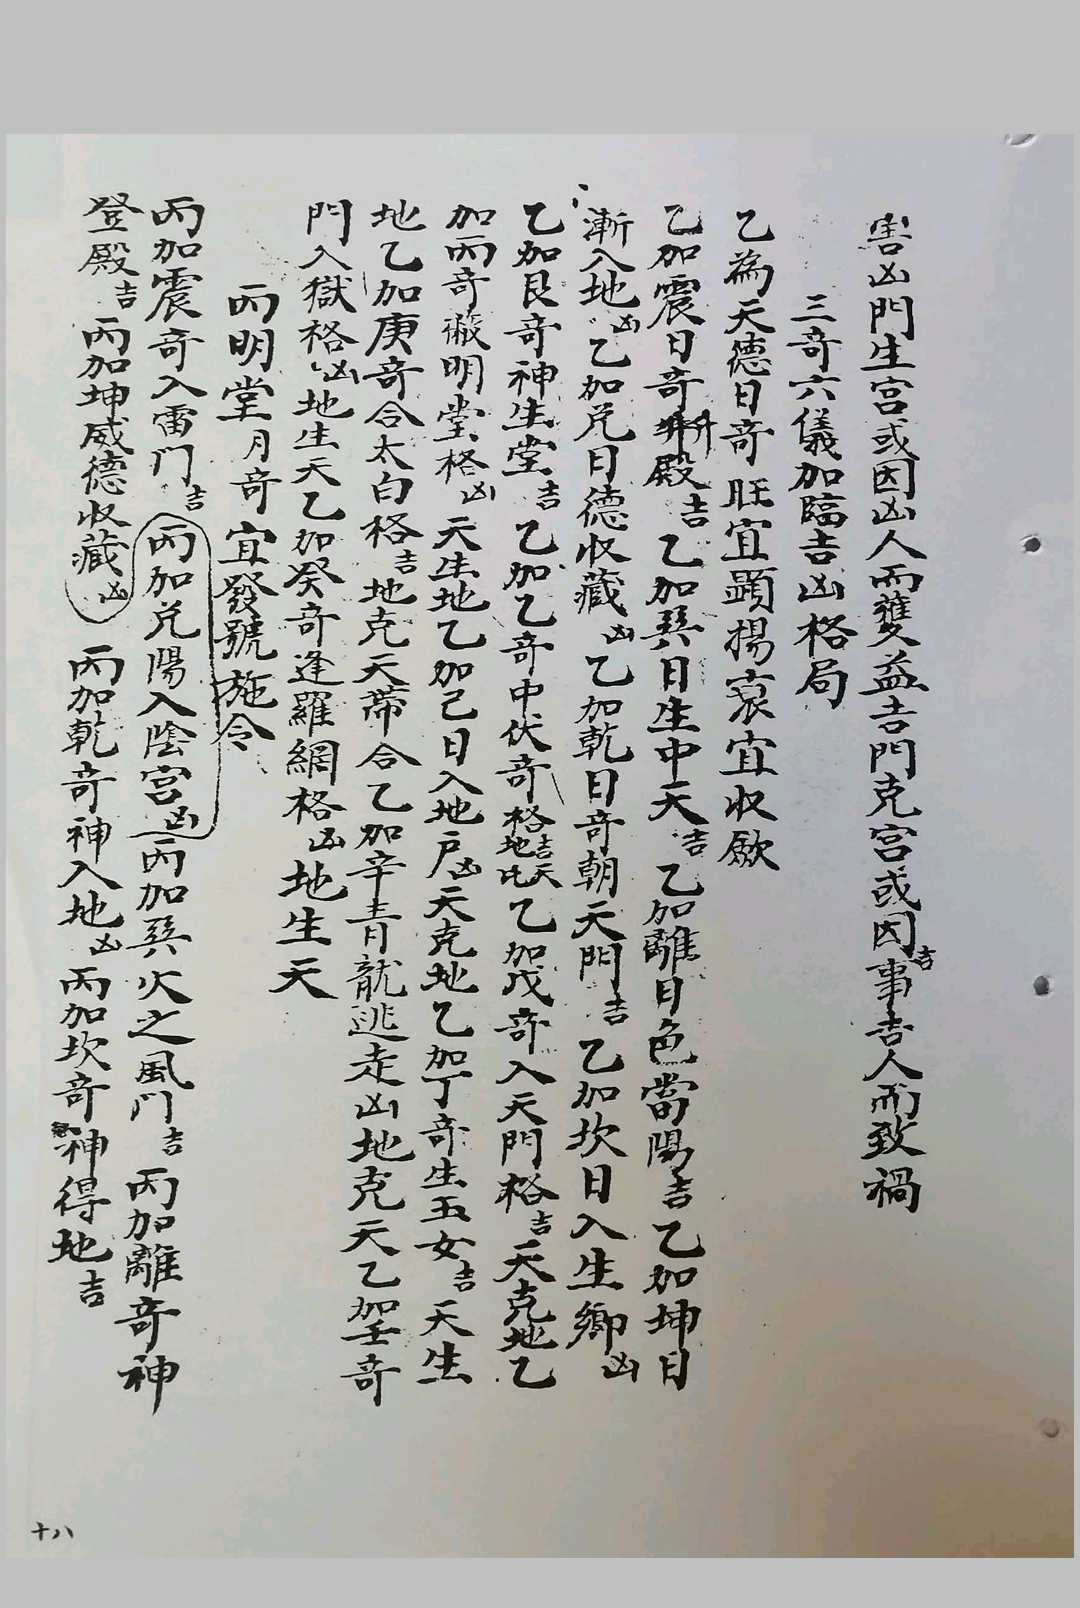 害凶門生宮或因凶人而獲益吉門克宮或因吉事吉人而致禍
三奇六儀加臨吉凶格局
乙為天德日奇旺宜顯揚衰宜收歛
乙加震日奇升殿吉乙加巽日生中天吉乙加離日色當陽吉乙加坤日
漸入地凶乙加兌日德收藏凶乙加乾日奇朝天門吉乙加坎日入生鄉凶
乙加艮奇神生堂吉乙加乙奇中伏奇格吉天地比乙加戊奇入天門格吉天克地乙
加丙奇蔽明堂格凶天生地乙加己日入地戶凶天克地乙加丁奇生玉女吉天生
地乙加庚奇合太白格吉地克天帶合乙加辛青龍逃走凶地克天乙加壬奇
門入獄格凶地生天乙加癸奇逢羅網格凶地生天
丙明堂月奇宜發號施令
丙加震奇入雷門吉丙加兌陽入陰宮凶丙加巽火之風門吉丙加離奇神
登殿吉丙加坤威德收藏凶丙加乾奇神入地凶丙加坎奇神得地吉
十八